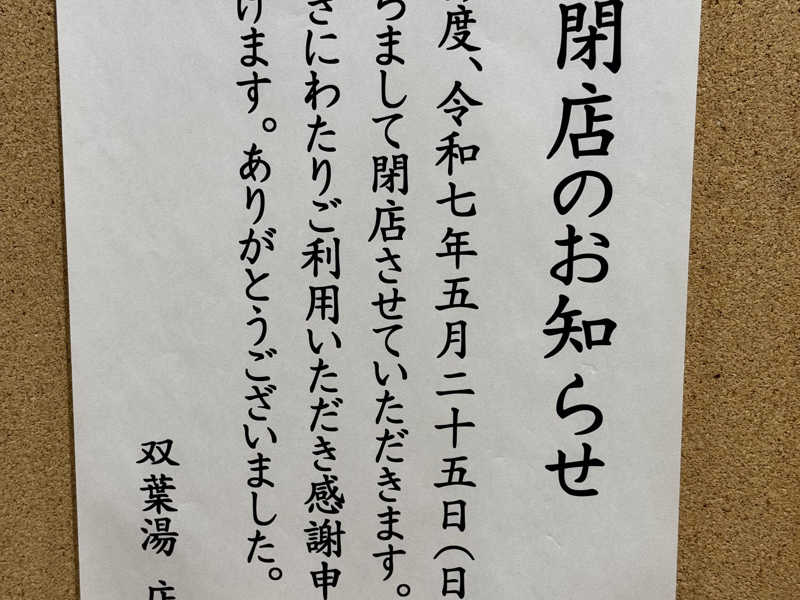 閉店のお知らせ
度、令和七年五月二十五日(日
らまして閉店させていただきます。
さにわたりご利用いただき感謝申
げます。ありがとうございました。
双葉湯 店